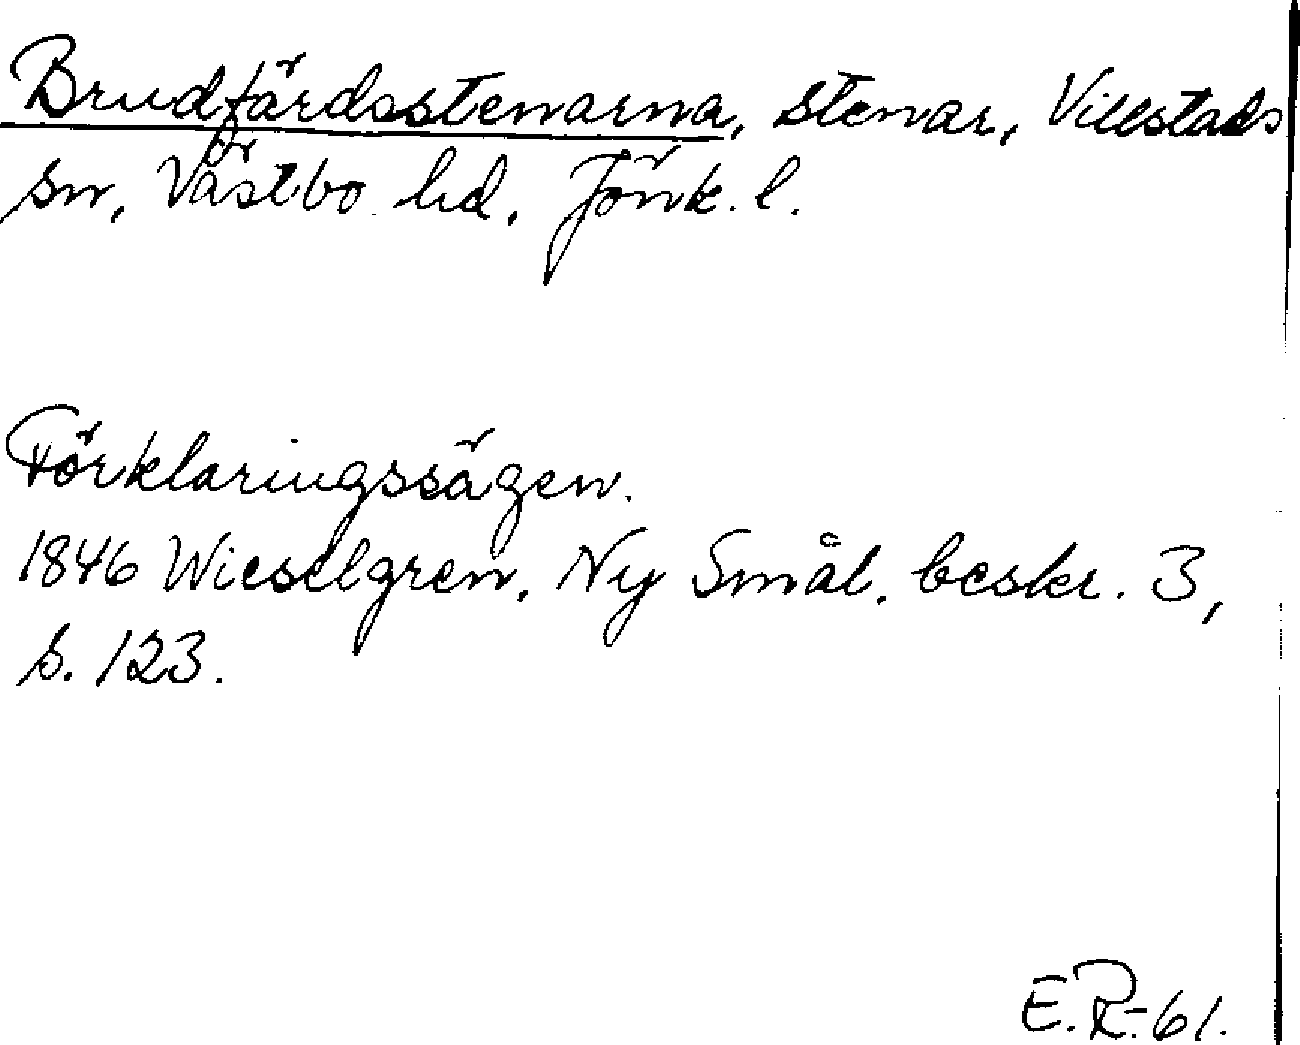 Brudfärdsstenarna, stenar, Villstads
sn, Västbo hd, Jönk. l.
Förklaringssägen.
1846 Wieselgren, Ny Smål. beskr. 3,
s. 123.
E.R.-61.